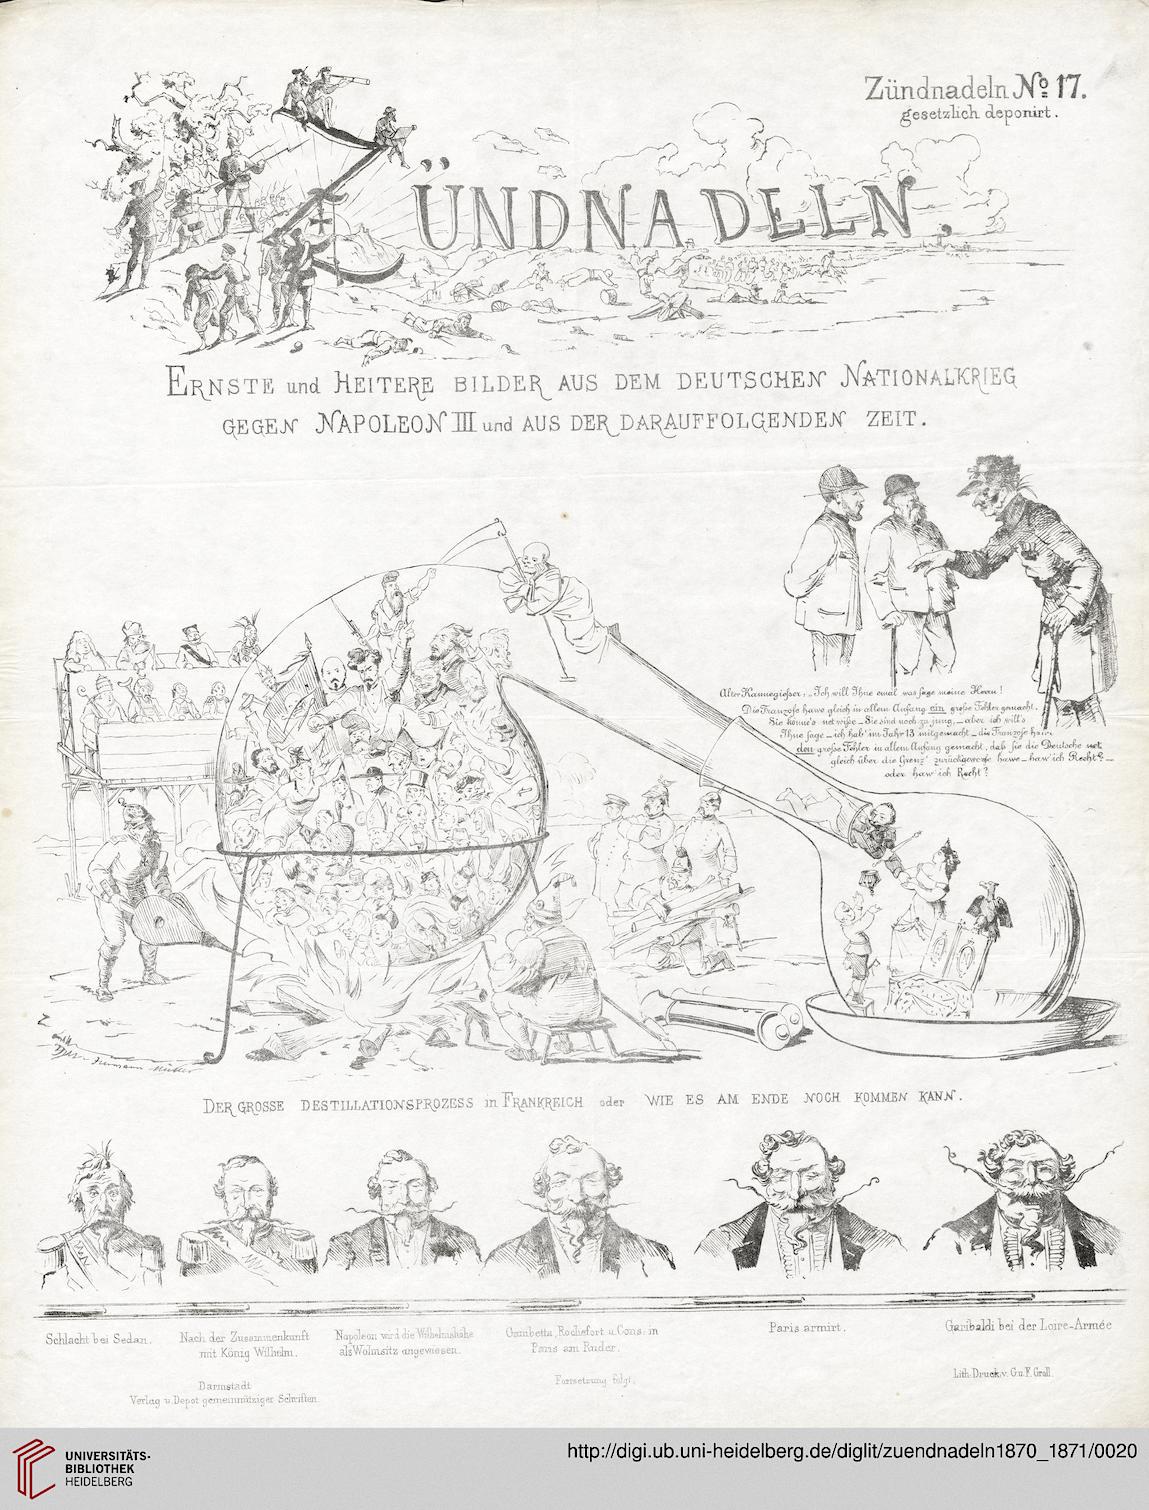 Zündnadeln No 17.
gesetzlich deponirt.
ZÜNDNADELN,
PARIS
ERNSTE und HEITERE BILDER AUS DEM DEUTSCHEN NATIONALKRIEG
GEGEN NAPOLEON III und AUS DER DARAUFFOLGENDEN ZEIT.
Alter Kannegießer: „Ich will Ihne emal was sage meine Herrn!
Die Franzose hawe gleich in allem Anfang ein große Fehler gemacht.
Sie könne's net wisse – Sie sind noch zu jung, – aber ich will's
Ihne sage – ich hab' im Jahr 13 mitgemacht – die Franzose hawe
den große Fehler in allem Anfang gemacht, daß sie die Deutsche net
gleich über die Grenz' zurückgeworfe hawe – haw' ich Recht? –
oder haw' ich Recht?
Hermann Müller
DER GROSSE DESTILLATIONSPROZESS in FRANKREICH oder WIE ES AM ENDE NOCH KOMMEN KANN.
Schlacht bei Sedan.
Nach der Zusammenkunft
mit König Wilhelm.
Napoleon wird die Wilhelmshöhe
als Wohnsitz angewiesen.
Gambetta, Rochefort u. Cons. in
Paris am Ruder.
Paris armirt.
Garibaldi bei der Loire-Armée
Darmstadt
Verlag u. Depot gemeinnütziger Schriften.
Fortsetzung folgt.
Lith. Druck v. G. u. F. Groll.
UNIVERSITÄTS-
BIBLIOTHEK
HEIDELBERG
http://digi.ub.uni-heidelberg.de/diglit/zuendnadeln1870_1871/0020